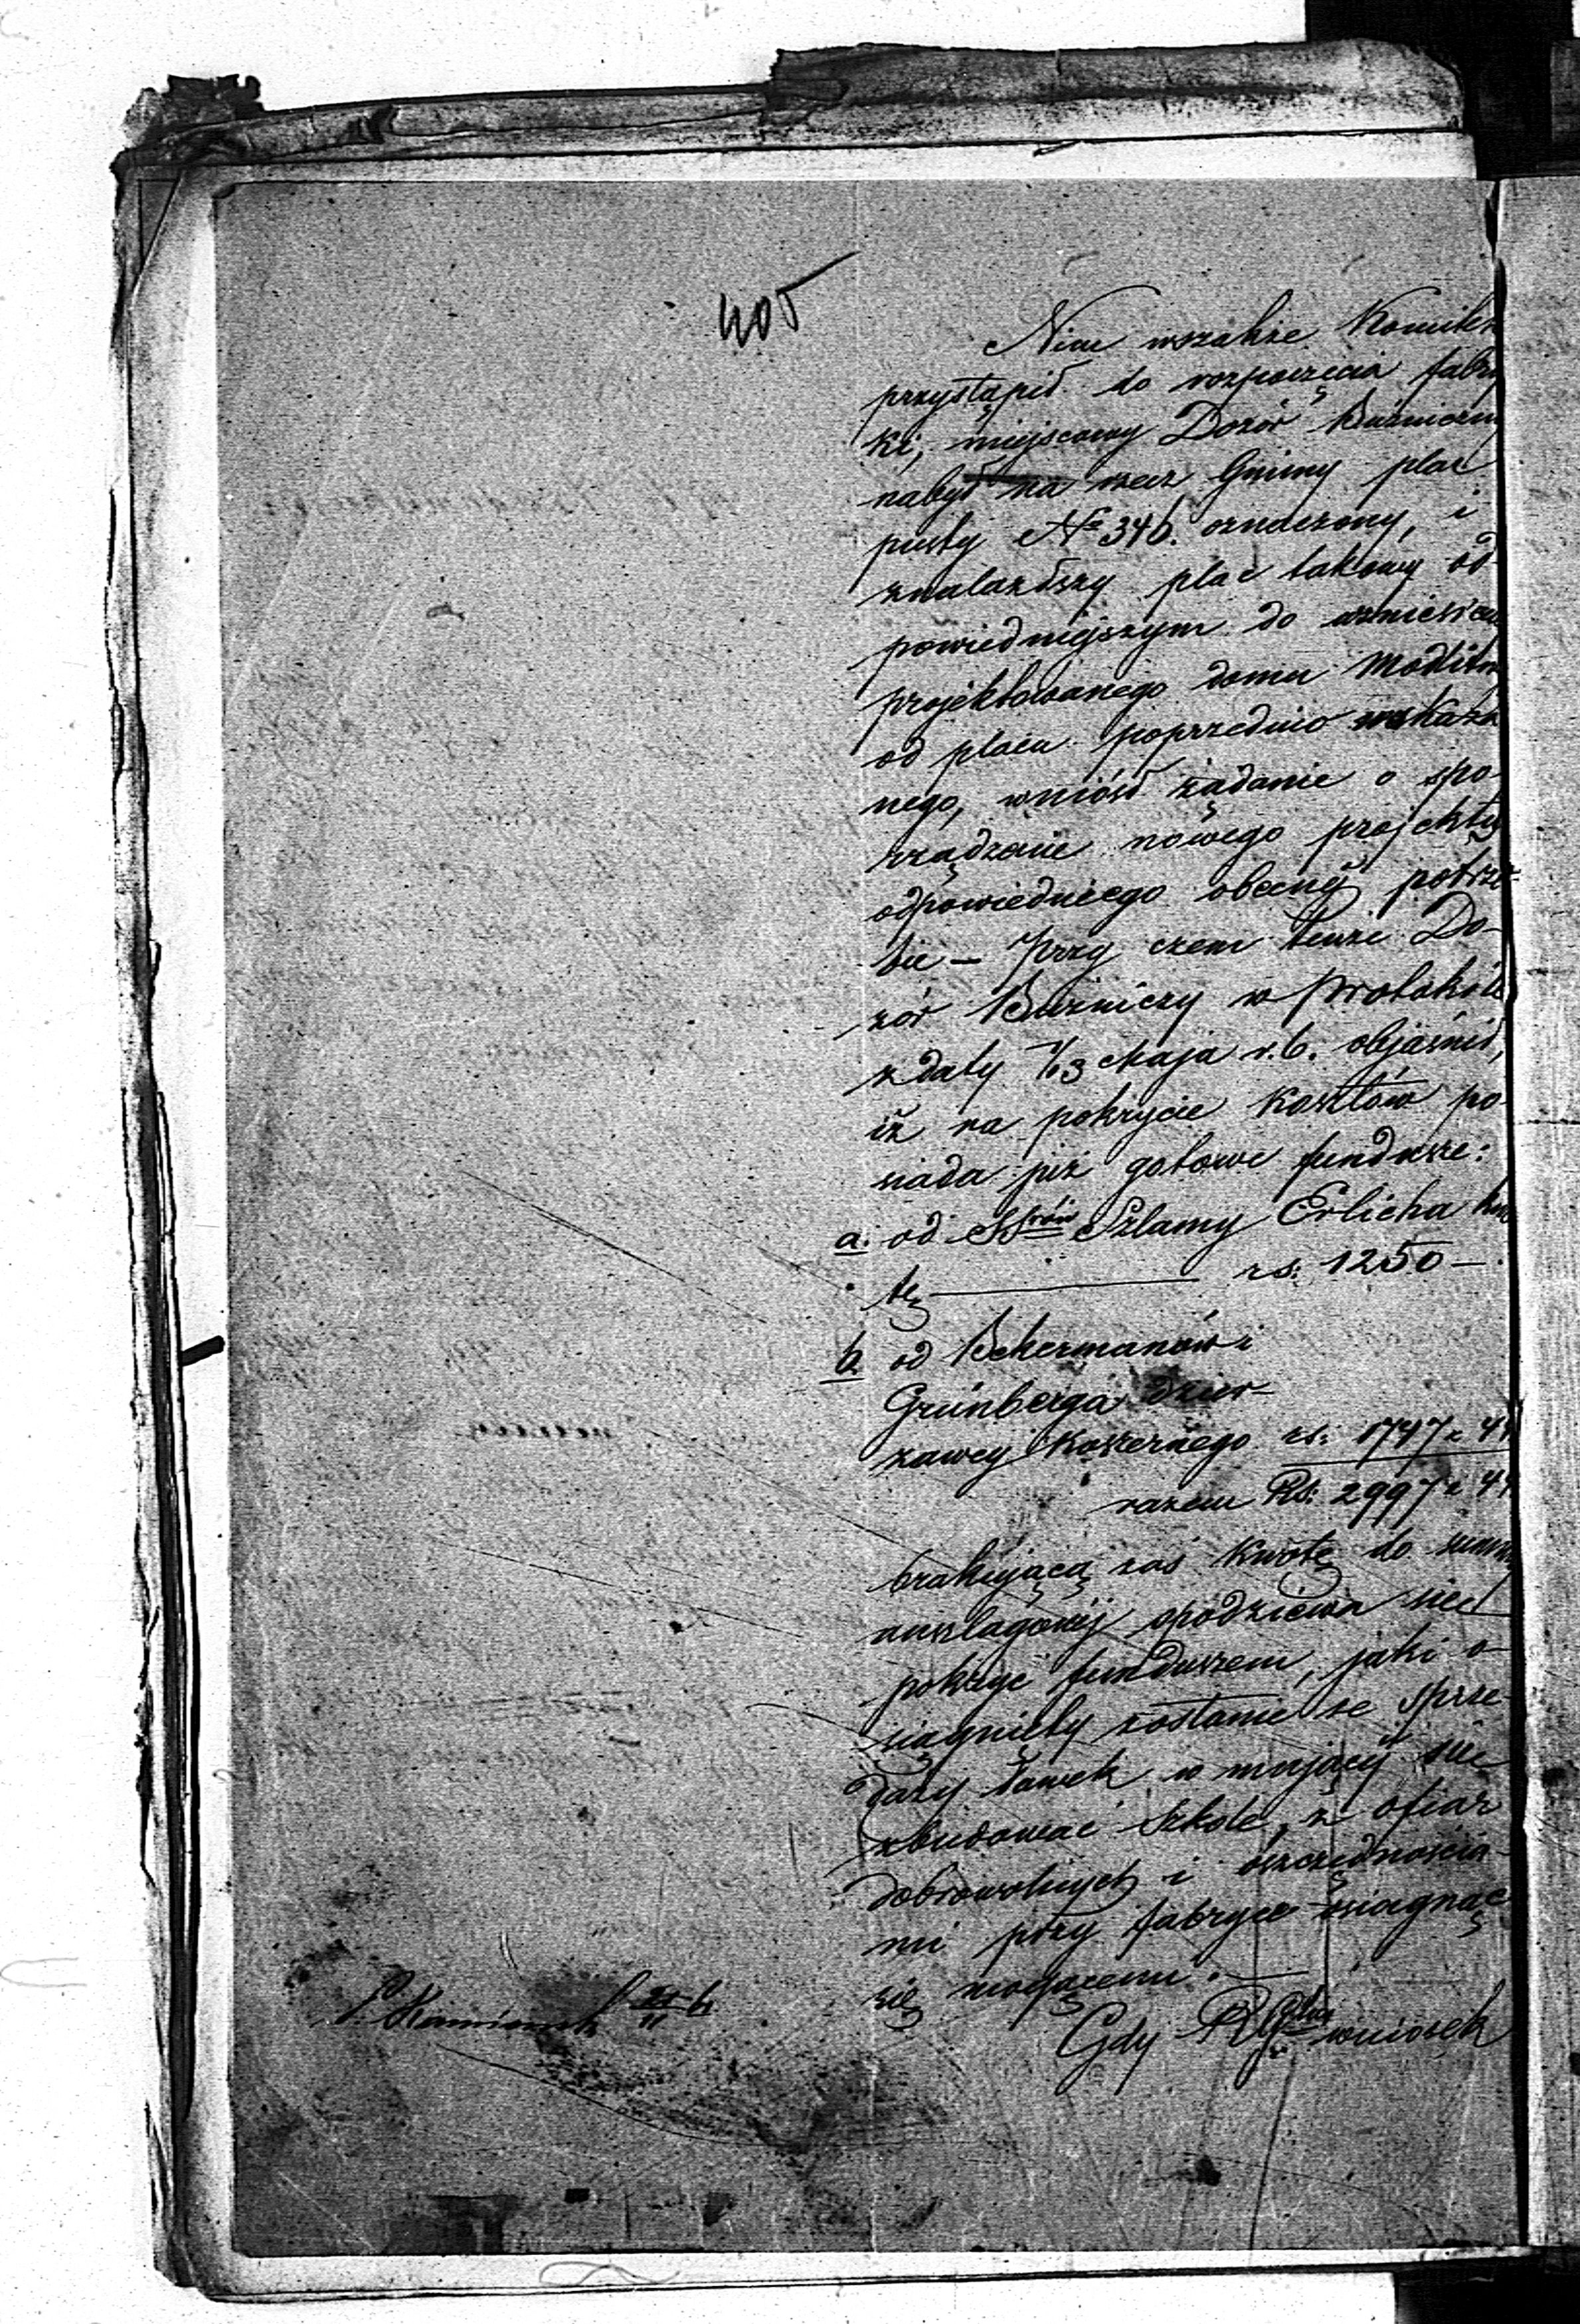 405
Nim wszakże Komitet
przystąpił do rozpoczęcia fabry
ki, miejscowy Dozór Bużniczny
nabył na rzecz Gminy plac
pusty № 346. oznaczony, i
znalazłszy plac takowy od
powiedniejszym do wzniesien
projektowanego domu modlitw
od placu poprzednio wskaza
nego, wniósł żądanie o spo
rządzenie nowego projektu
odpowiedniego obecnéj potrze-
bie – Przy czem tenże Do-
zór Bużniczy w Protokóle
z daty 1/13 Maja r. b. objaśnił,
iż na pokrycie kosztów po-
siada już gotowe fundusze:
a. od SSrów Szlamy Erlicha kwo
tę ——— rs: 1250 –.
b. od Bekermanów i
Grünberga dzier-
żawcy koszernego rs: 1747 k 44
razem Rs: 2997 k 44
brakującą zaś kwotę do summy
anszlagowéj spodziewa się
pokryć funduszem, jaki o-
siągnięty zostanie ze sprze
daży ławek w mającéj się
zbudować Szkole, z ofiar
dobrowolnych i oszczędnościa-
mi przy fabryce osiągnąć
się mogącemi. –
Gdy wniosek